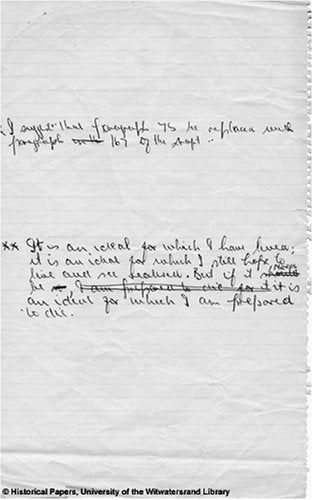 I suggest that paragraph 75 be replaced with
paragraph 167 of the draft
** It is an ideal for which I have lived;
it is an ideal for which I still hope to
live and see realised. But if it should needs
be so, I am prepared to die for it it is
an ideal for which I am prepared
to die.
© Historical Papers, University of the Witwatersrand Library